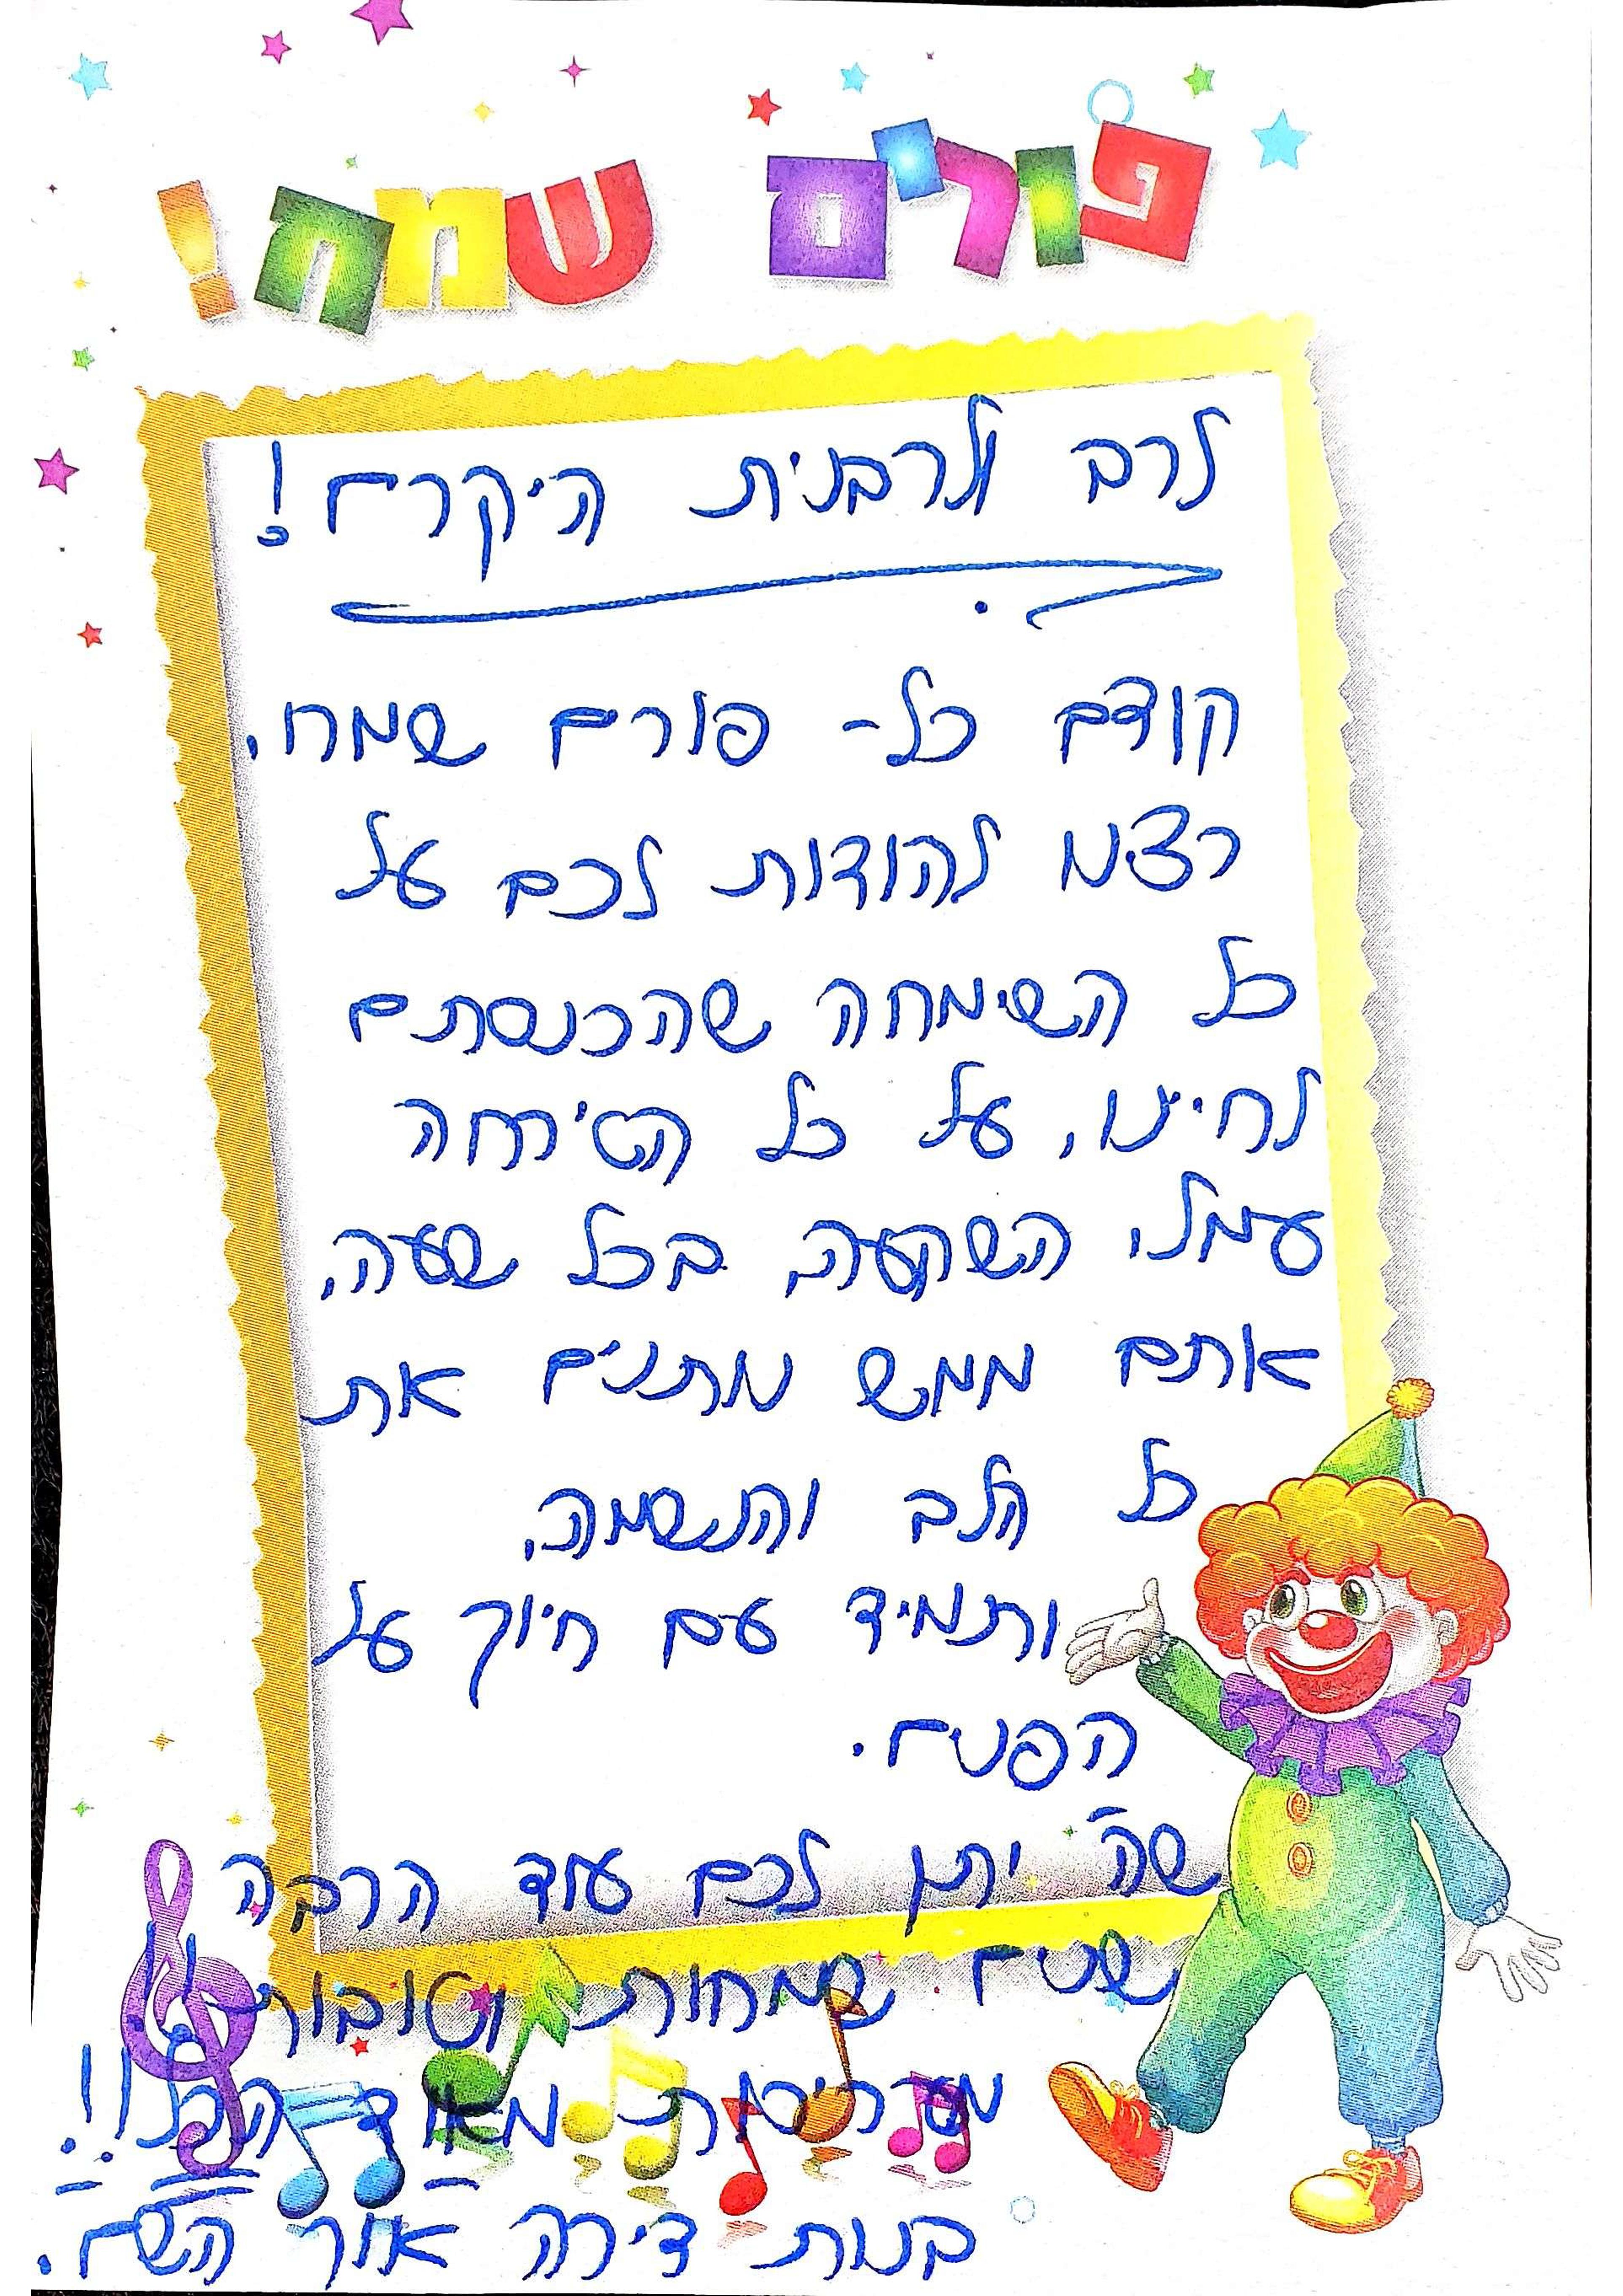 פורים שמח!
לרב ולרבנית היקרים!
קודם כל - פורים שמח,
רצינו להודות לכם על
כל השימחה שהכנסתם
לחיינו, על כל הטירחה
עמל, השקעה, בכל שעה,
אתם ממש נותנים את
כל הלב והנשמה,
ותמיד עם חיוך על
הפנים.
שה' יתן לכם עוד הרבה
שנים שמחות וטובות!!
מעריכות מאוד הכל!!
בנות דירה אור השם.